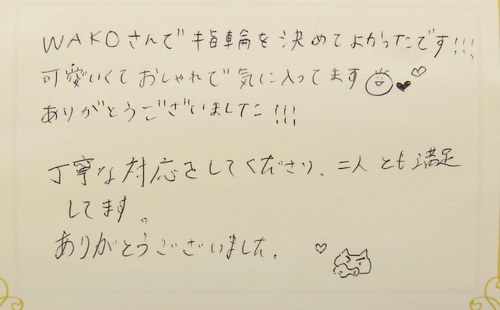 WAKOさんで指輪を決めてよかったです!!!
可愛いくておしゃれで気に入ってます
ありがとうございました!!!
丁寧な対応をしてくださり、二人とも満足
してます。
ありがとうございました。